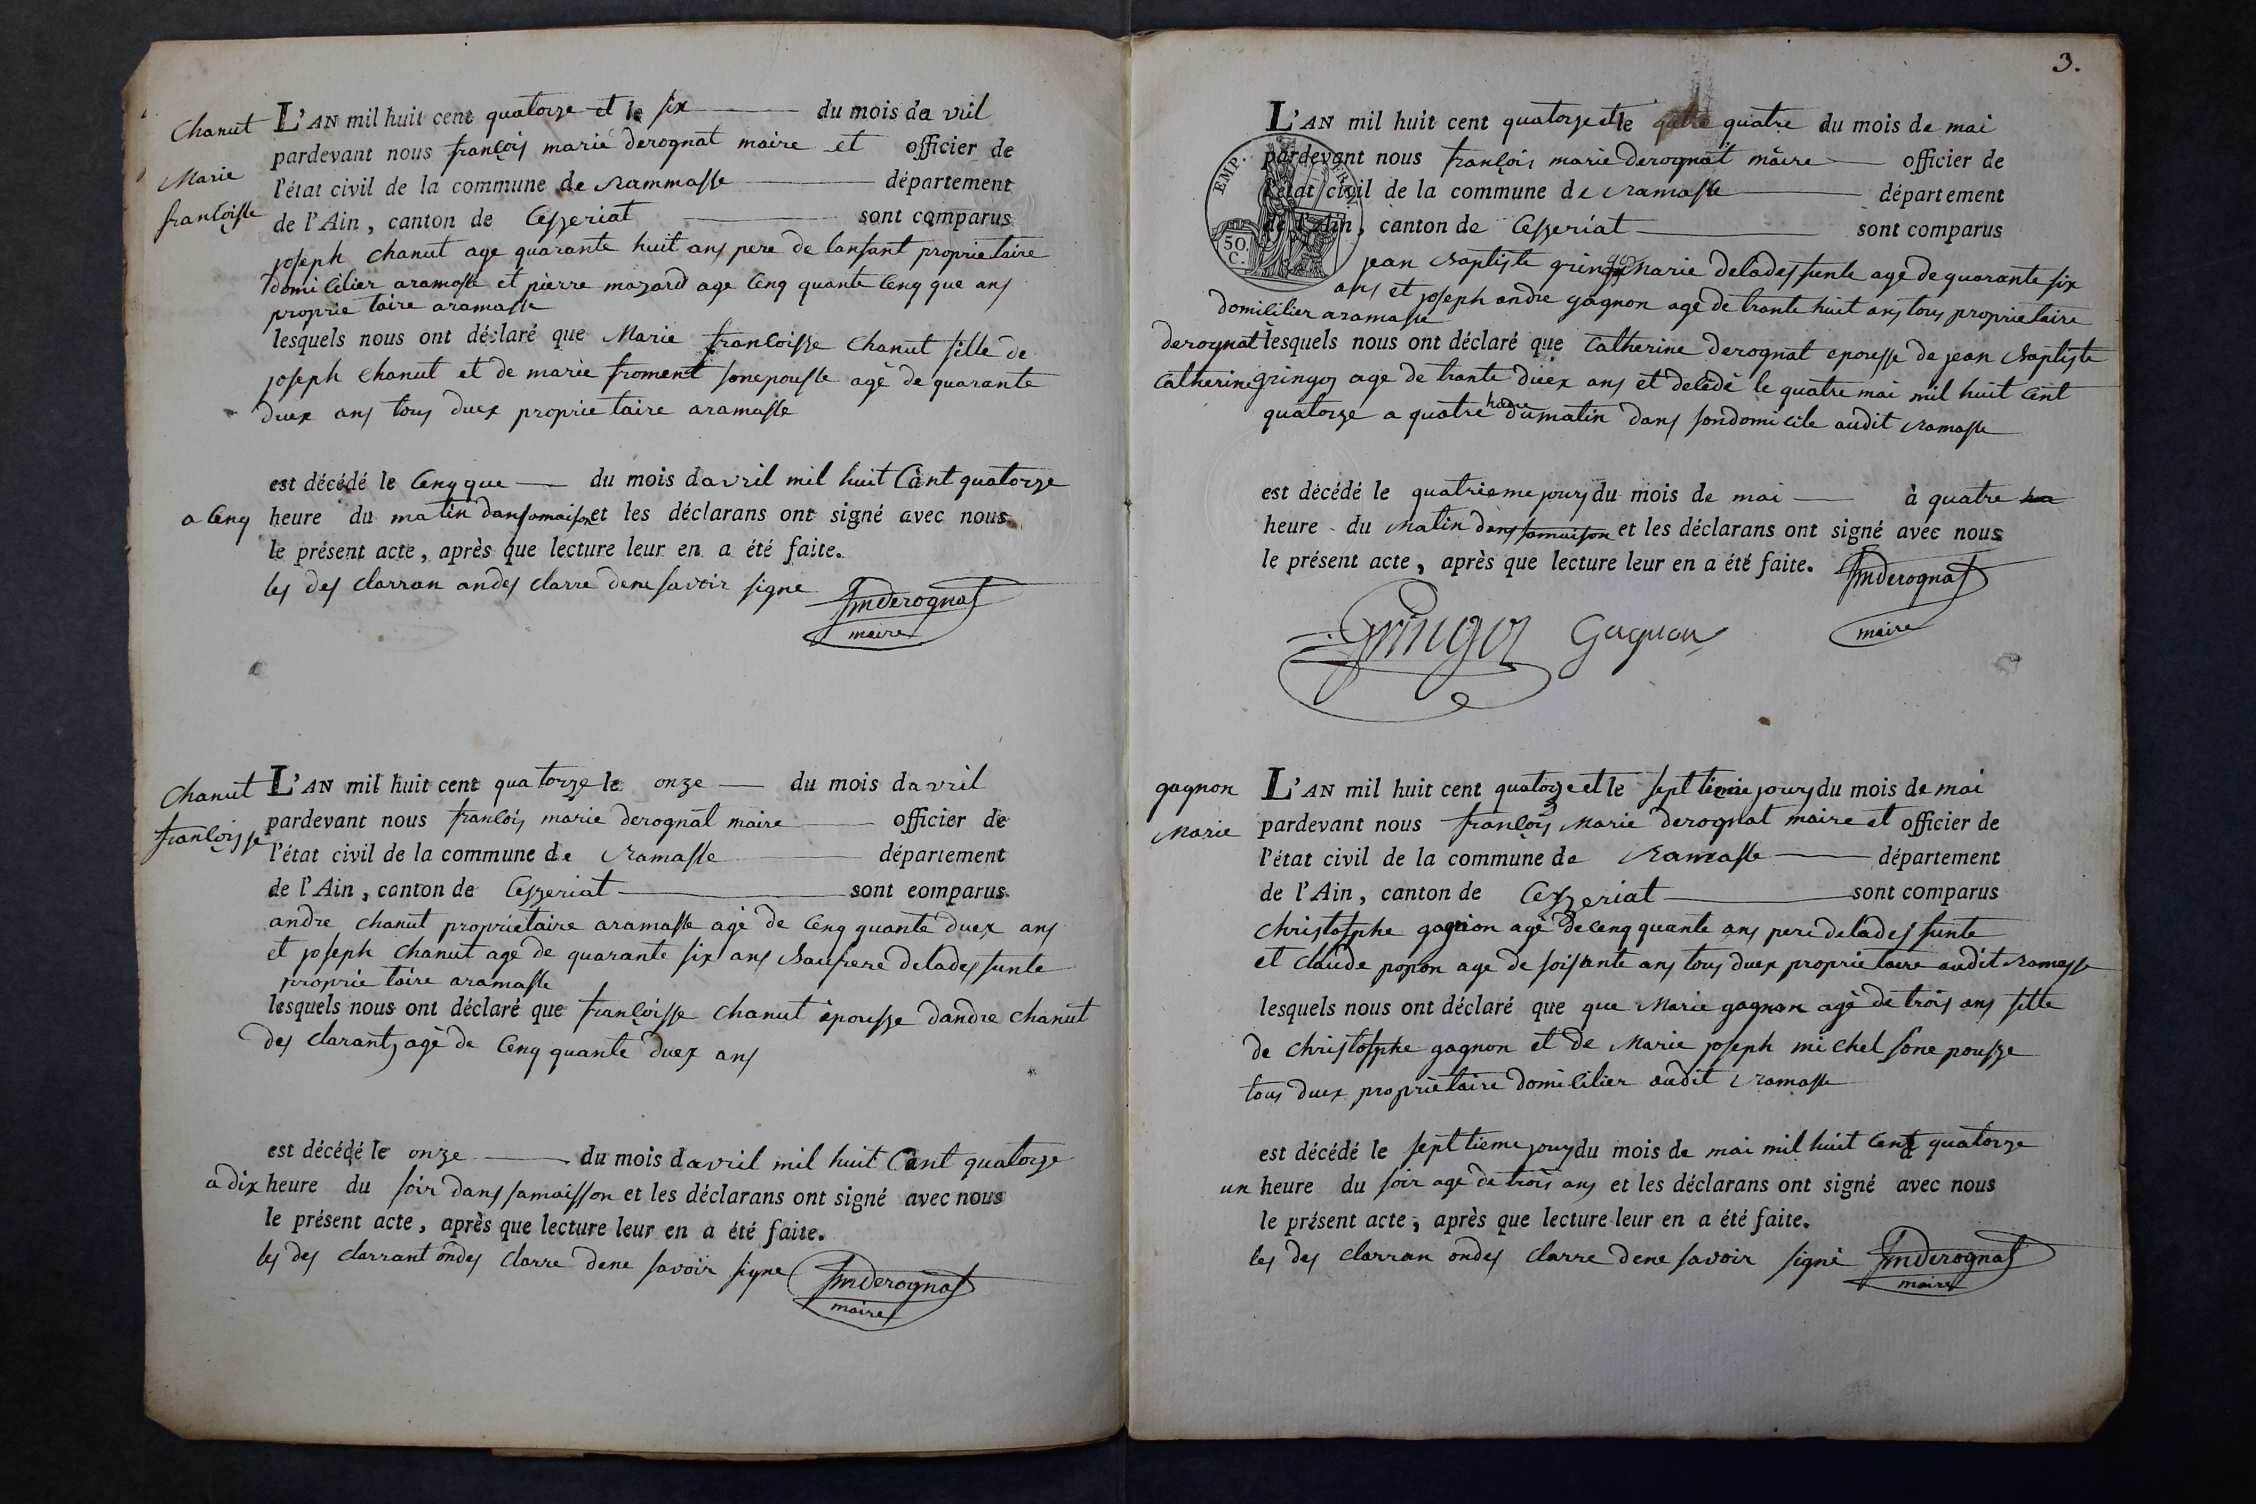 Chanut
Marie
françoisse
L'AN mil huit cent quatorze et le six du mois da vril
pardevant nous françois marie derognat maire et officier de
l'état civil de la commune de rammasse département
de l'Ain, canton de Ceszeriat sont comparus
joseph chanut age quarante huit ans pere de lanfant proprietaire
domicilier aramasse et pierre mazard age cenq quante cenq que ans
proprie taire aramasse
lesquels nous ont déclaré que Marie francoisse chanut fille de
joseph chanut et de marie froment sonepousse agè de quarante
duex ans tous duex proprie taire aramasse
est décédé le Cenqque du mois davril mil huit Cant quatorze
a Cenq heure du matin dansamaison et les déclarans ont signé avec nous
le présent acte, après que lecture leur en a été faite.
les des clarran andes clarre dene savoir signe fmderognat
maire
Chanut
françoisse
L'AN mil huit cent qua torze le onze du mois davril
pardevant nous françois marie derognat maire officier de
l'état civil de la commune de ramasse département
de l'Ain, canton de Ceszeriat sont comparus
andre chanut proprietaire aramasse agè de Cenq quante duex ans
et joseph chanut age de quarante six ans Baufrere delades funte
proprie taire aramasse
lesquels nous ont déclaré que françoisse chanut èpousse dandre chanut
des clarants agè de Cenq quante duex ans
est décédé le onze du mois davril mil huit Cant quatorze
a dix heure du soir dans samaisson et les déclarans ont signé avec nous
le présent acte, après que lecture leur en a été faite.
les des clarrant ondes clarre dene savoir signe fmderognat
maire
3.
L'AN mil huit cent quatorze et le quatre du mois de mai
pardevant nous françois marie derognat maire officier de
l'état civil de la commune de ramasse département
de l'Ain, canton de Cesseriat sont comparus
EMP. FRAN.
50.
C.
jean Baptiste gringoz marie delades funte age de quarante six
ans et joseph andre gagnon agè de trante huit ans tous proprietaire
domicilier aramasse
derognat
Catherine
lesquels nous ont déclaré que Catherine derognat epousse de jean Baptiste
gringoz age de trante duex ans et decédè le quatre mai mil huit Cant
quatorze a quatre heure dumatin dans sondomicile audit ramasse
est décédé le quatrieme jour du mois de mai à quatre
heure du matin dans samaison et les déclarans ont signé avec nous
le présent acte, après que lecture leur en a été faite. fmderognat
maire
Gringoz Gagnon
gagnon
Marie
L'AN mil huit cent quatorze et le sept tieme jour du mois de mai
pardevant nous françois Marie derognat maire et officier de
l'état civil de la commune de ramasse département
de l'Ain, canton de Cezzeriat sont comparus
christosphe gagnon agè de cenq quante ans pere delades funte
et claude popon age de soisante ans tous duex proprietaire audit ramasse
lesquels nous ont déclaré que que Marie gagnon agè de trois ans fille
de christosphe gagnon et de Marie joseph michel sone pousse
tous duex proprietaire domicilier audit ramasse
est décédé le sept tieme jour du mois de mai mil huit Cent quatorze
un heure du soir age de trois ans et les déclarans ont signé avec nous
le présent acte, après que lecture leur en a été faite.
les des clarran ondes clarre dene savoir signè fmderognat
maire